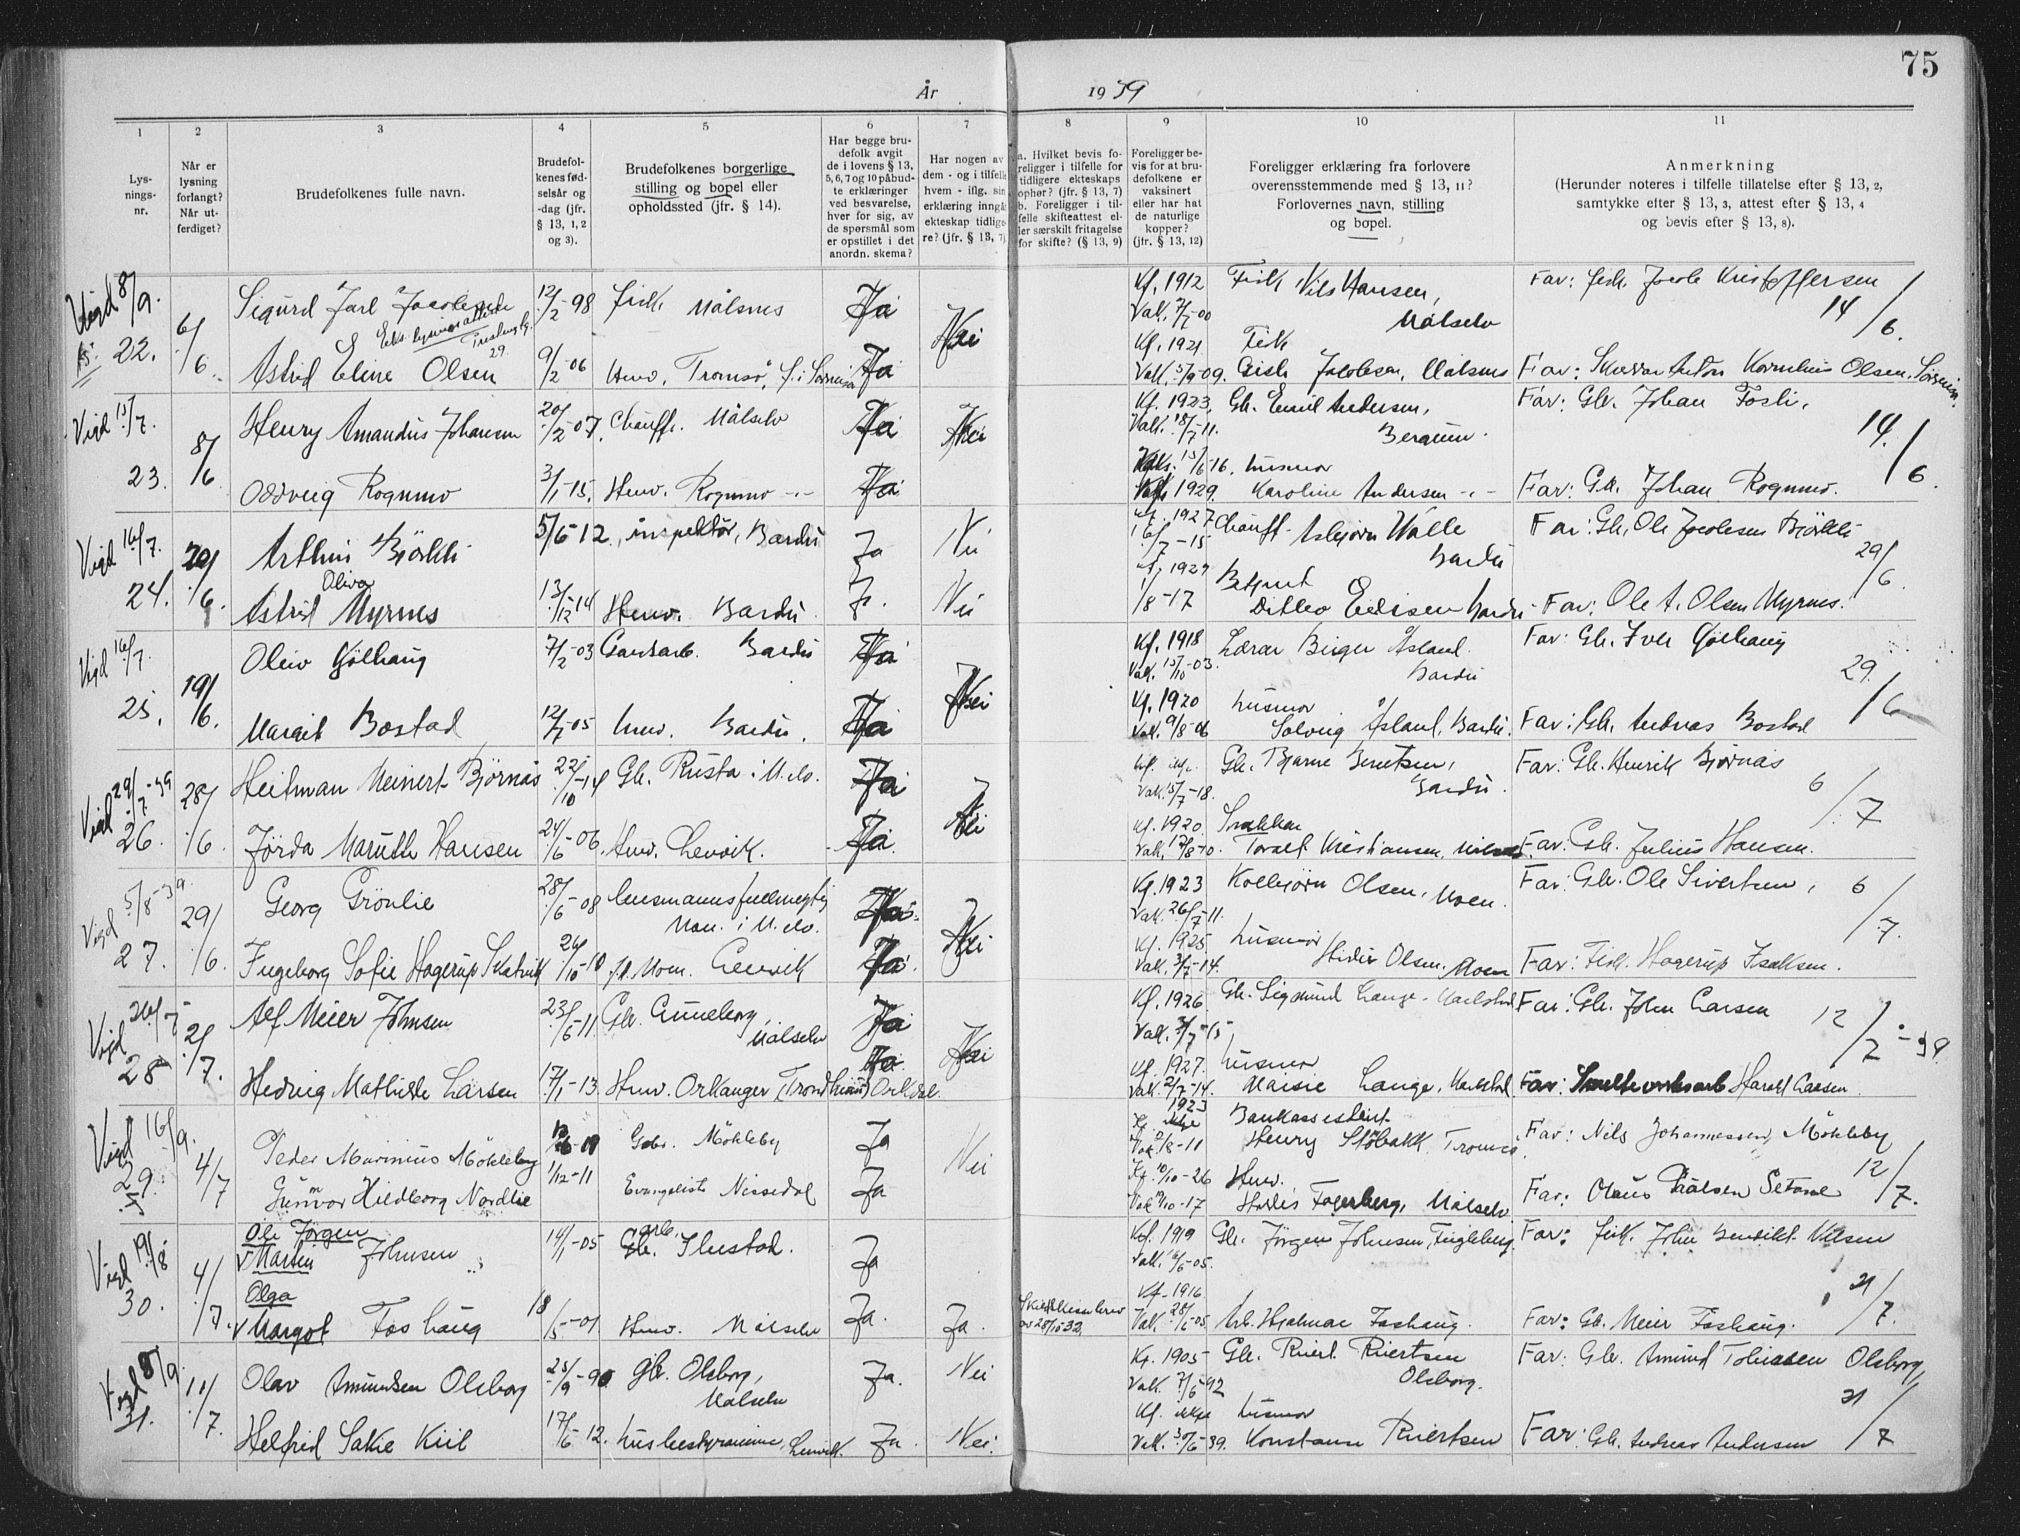 75
År 1939
1 2 3 4 5 6 7 8 9 10 11
Lysningsnr.
Når er lysning forlangt? Når utferdiget?
Brudefolkenes fulle navn.
Brudefolkenes fødselsår og -dag (jfr. § 13, 1, 2 og 3).
Brudefolkenes borgerlige stilling og bopel eller opholdssted (jfr. § 14).
Har begge brudefolk avgit de i lovens § 13, 5, 6, 7 og 10 påbudte erklæringer ved besvarelse, hver for sig, av de spørsmål som er opstillet i det anordn. skema?
Har nogen av dem - og i tilfelle hvem - iflg. sin erklæring inngått ekteskap tidligere? (jfr. § 13, 7)
a. Hvilket bevis foreligger i tilfelle for tidligere ekteskaps ophør? (jfr. § 13, 7) b. Foreligger i tilfelle skifteattest eller særskilt fritagelse for skifte? (§ 13, 9)
Foreligger bevis for at brudefolkene er vaksinert eller har hat de naturlige kopper? (jfr. § 13, 12)
Foreligger erklæring fra forlovere overensstemmende med § 13, 11? Forlovernes navn, stilling og bopel.
Anmerkning (Herunder noteres i tilfelle tillatelse efter § 13, 2, samtykke efter § 13, 3, attest efter § 13, 4 og bevis efter § 13, 8).
Vigd 8/9. 22. 6/6. Sigurd Jarl 12/2-98 Fisk. Målsnes Ja Nei Kf. 1912 Fisk Nils Hansen, Målselv Far: fisk. Jacob Kristoffersen 14/6.
Astrid Eline Olsen 9/2-06 Husv. Tromsø, Ja Kf. 1921 Fisk Jacobsen, Målsnes Far: Anton Kornelius Olsen,
Vigd 15/7. 23. 8/6 Henry Amandus Johansen 20/2-07. Chauff. Målselv Ja Nei Kf. 1923, Gb. Emil Andersen, Far: Gb. Johan Fosli, 14./6.
Oddveig Rognmo 3/1-15. Husv. Rognmo -"- Ja 1929. husmor Karoline Andersen -"- Far: Gb. Johan Rognmo.
Vigd 16/7. 24. 20/6. Arthur Bjørkli 5/6-12. inspektør, Bardu Ja Nei Kf. 1927 Chauff. Asbjørn Bardu Far: Gb. Ole Jacobsen Bjørkli 29/6.
Astrid Oliva Myrnes 13/12-14 Husv. Bardu Ja. Nei 1/8-17 Ditlev Bardu Far: Ole A. Olsen Myrnes.
Vigd 16/7. 25. 19/6. Oliv 7/2-03 Gardsarb. Bardu Ja Nei Kf. 1918 Vak. 15/10-03. Lærer Birger Åsland Bardu Far: Gb. Iver 29./6
Margit Bostad 12/7-05 husv. Bardu. Ja Kf. 1920 Vak. 9/8-06 husmor Solveig Åsland, Bardu. Far: Gb. Andreas Bostad
Vigd 29/7-39 26. 28/6. Heitman Meinert Bjørnås 22/10-14 Gb. Rusta i M.elv. Ja Nei Vak. 15/7-18. Gb. Bjarne Berntsen, Bardu. Far: Gb. Henrik Bjørnås 6/7
Jørda Maruth Hansen 24/6-06. Husv. Lenvik. Ja. Kf. 1920. Kristiansen, Far: Gb. Julius Hansen.
Vigd 5/8-39. 27. 29/6. Georg Grönlie 28/6-08 lensmannsfullmegtig Moen i M.elv. Ja Nei Kf. 1923 Vak. 26/7-11. Kolbjørn Olsen, Moen. Far: Gb. Ole Sivertsen, 6/7.
Ingeborg Sofie Hagerup Skatvik 26/10-10 Lenvik Ja. Kf. 1925 Vak. 3/7-14. husmor Olsen, Moen Far: Fisk. Hagerup Isaksen.
Vigd 26/7 28 21/7. Alf Meier Johnsen 23/6-11 Gb. Målselv Ja Nei Kf. 1926 Gb. Sigmund Lange, Karlstad Far: Gb. John Larsen 12/7-39
Hedvig Mathilde Larsen 17/1-13 Husv. Orkanger (Trondheim) Orkdal. Ja Kf. 1927. Vak. 2/7-14. husmor Maisie Lange, Karlstad Far: Smelteverksarb Harald Larsen
Vigd 16/9. 29. 4/7 Peder Marinius Mökleby Gbr. Mökleby Ja Nei 1923 Bankassistent Henry Støbakk, Tromsø Far: Nils Johannessen, Mökleby 12/7.
Gunvor Hildborg Nordlie 1/12-11 Evangelist Nissedal Ja Kf. 10/10-26 Husv. Fagerberg, Målselv Far: Olaus Paalsen Setane
Vigd 19/8 30. 4/7. Ole Jørgen Martin Johnsen 14/1-05 Gb. arb. Ja Kf. 1919 Vak. 16/6-05. Gb. Jørgen Johnsen, Fugleberg. Far: fisk. John Benedikt Nilsen
Olga Margot Foshaug 18/5-01 Husv. Målselv Ja. Ja. av 28/10-32. Kf. 1916 Arb. Hjalmar Foshaug. Far: Gb. Meier Foshaug. 21/7.
Vigd 8/9. 31. 11/7. Olav Amundsen Olsborg 25/9-90 gb. Olsborg, Målselv Ja. Nei Kf. 1905 Vak. 7/6-92 Gb. Riert Riertsen Olsborg. Far: Gb. Amund Tobiassen Olsborg, 21/7
Helfrid Sakie Kiil 17/6-12. husbestyrerinne, Lenvik. Ja. Nei. Kf. ikke Vak. 30/6-39. husmor Konstanse Riertsen Far: Gb. Andreas Andersen